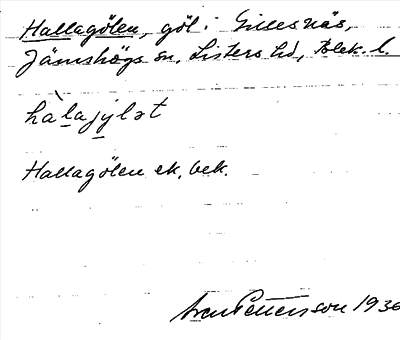 Hallagölen, göl i Gillesnäs,
Jämshögs sn, Listers hd, Blek. l.
hàlajylət
Hallagölen ek, bek.
Sven Pettersson 1936